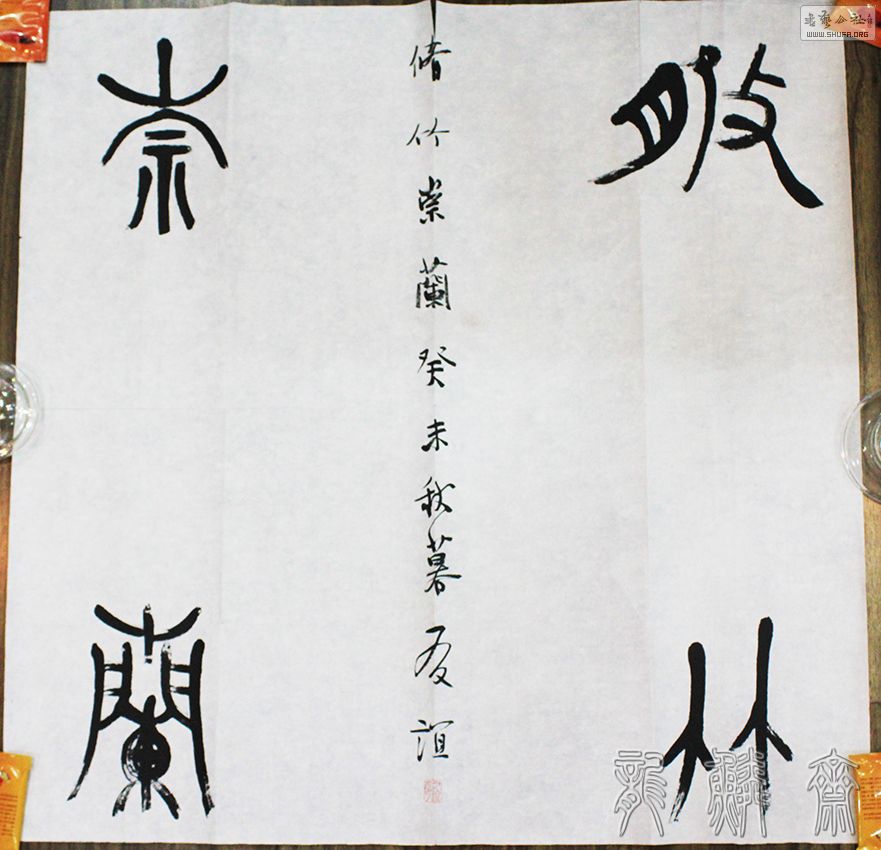 脩竹
崇蘭
脩竹崇蘭癸未秋暮友誼
書藝公社
WWW.SHUFA.ORG
龍麟齋